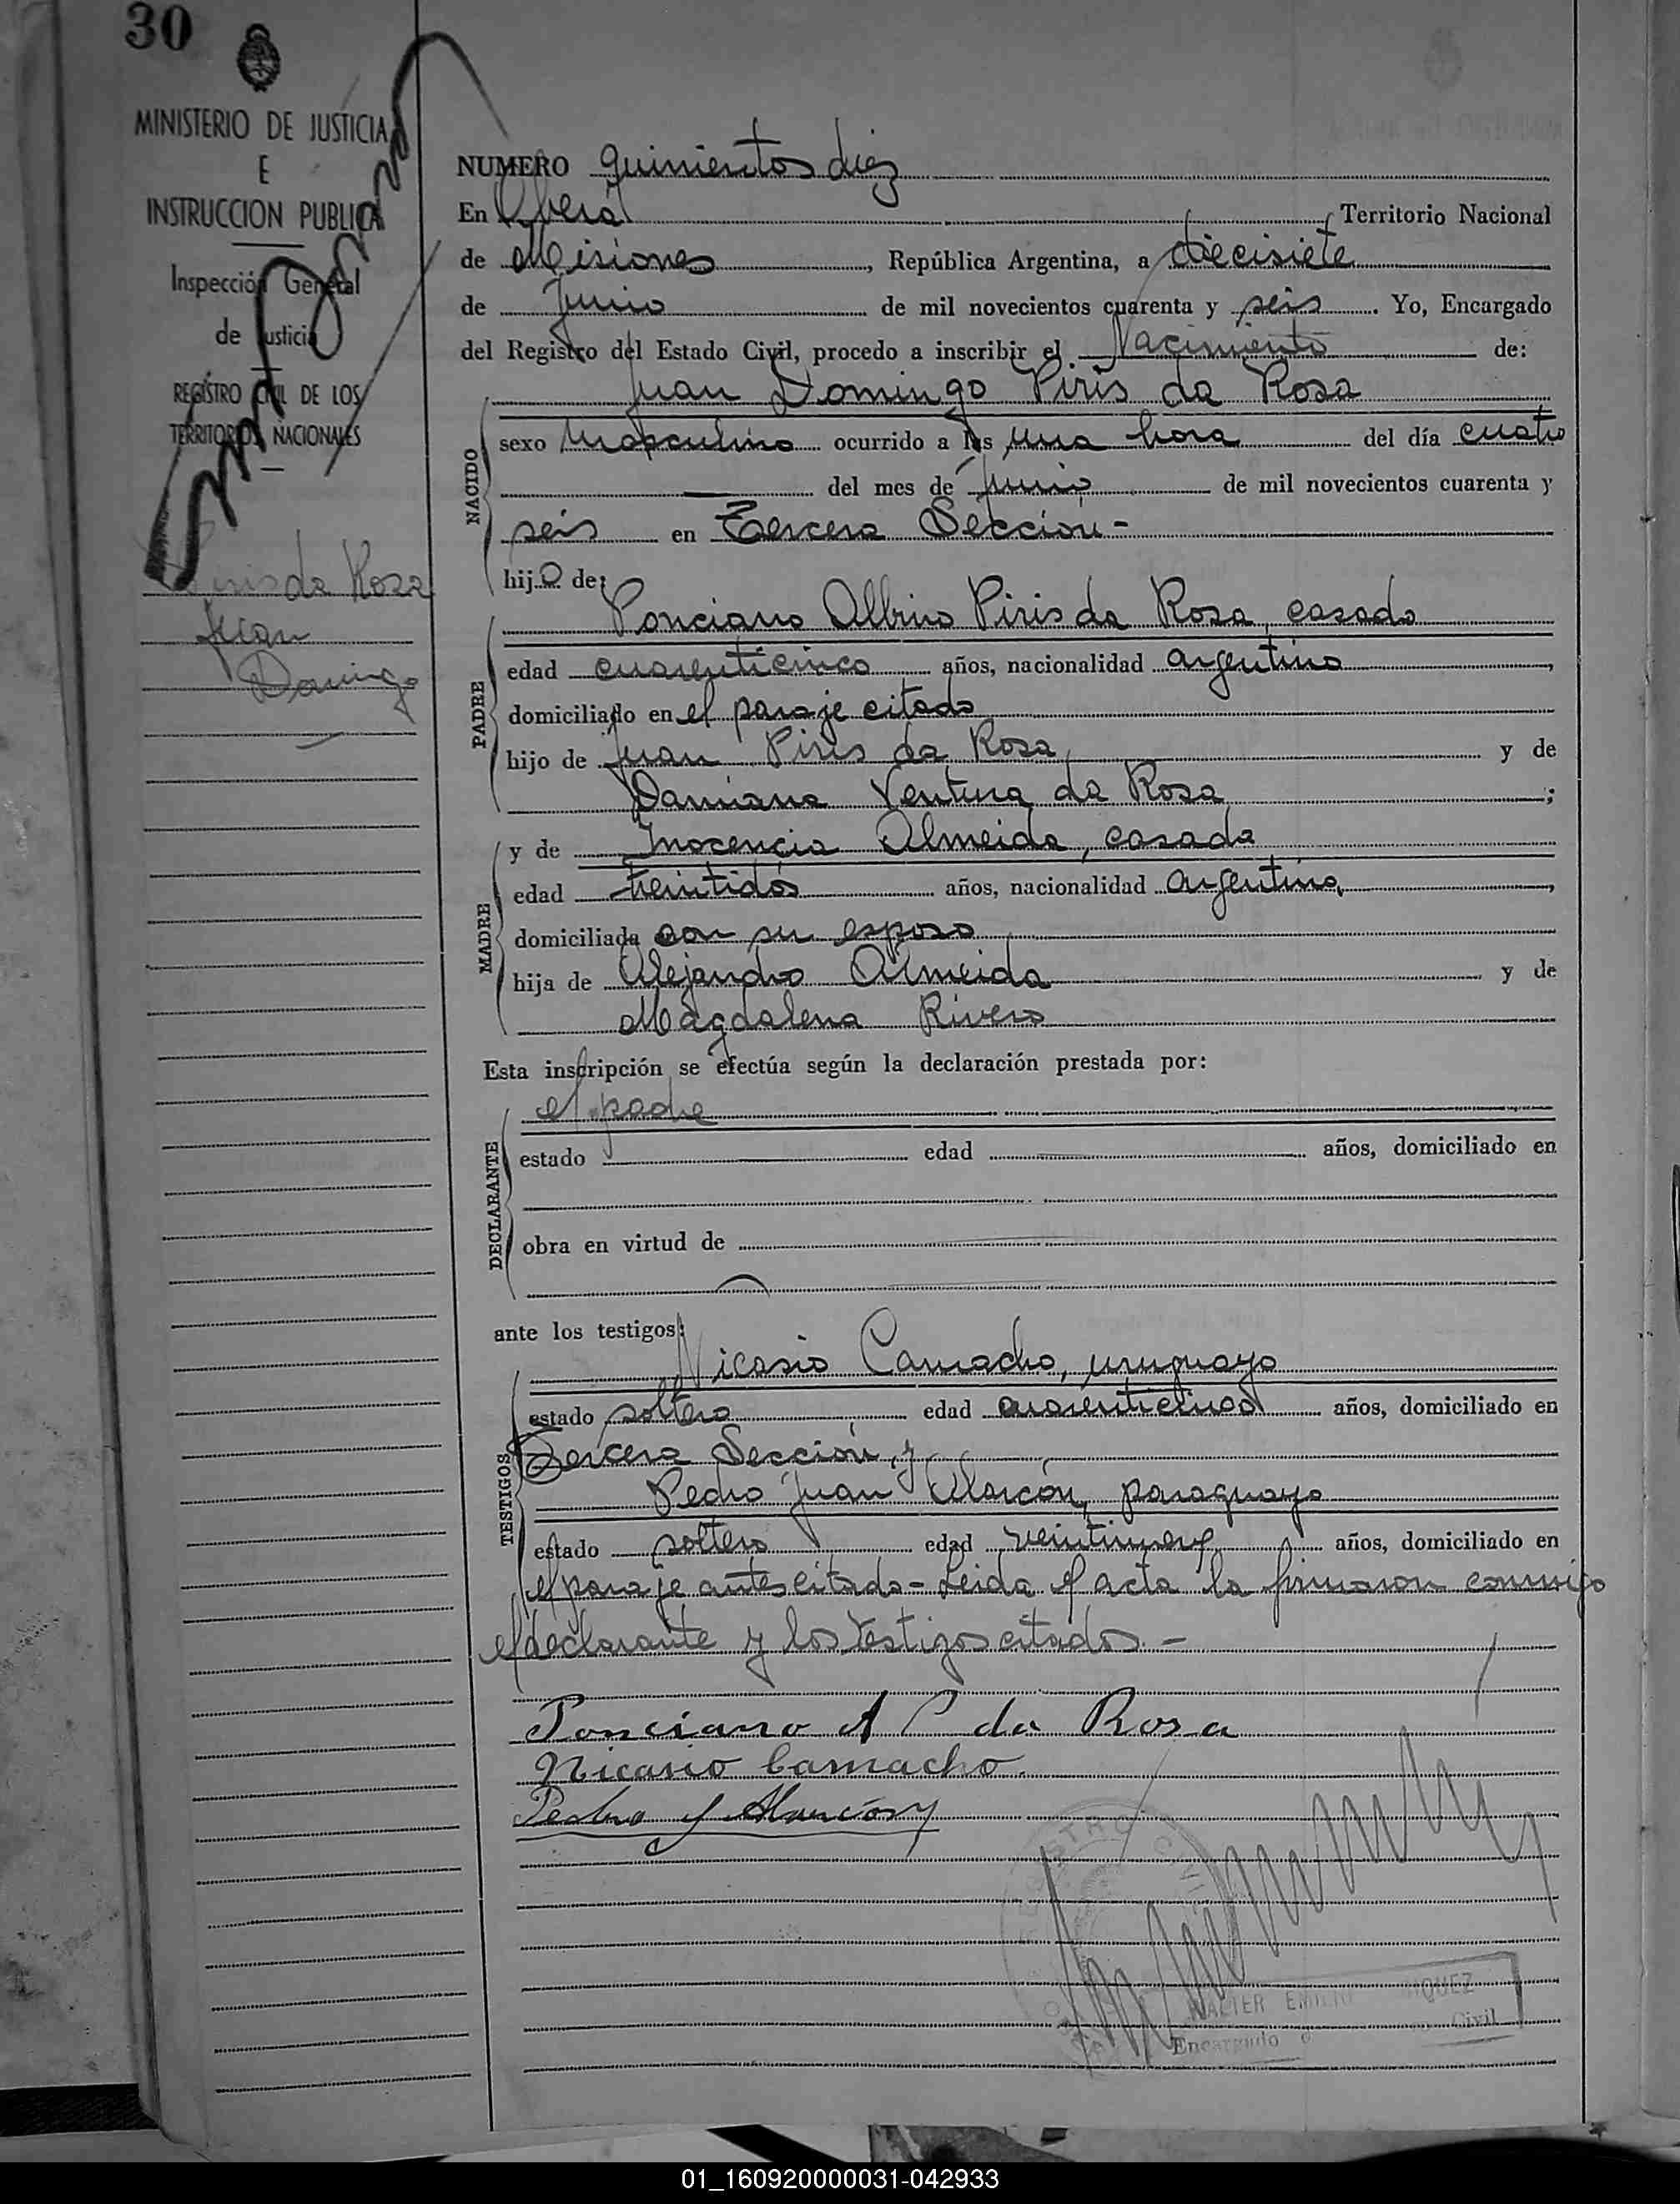 30
MINISTERIO DE JUSTICIA
E
INSTRUCCION PUBLICA
Inspección General
de Justicia
REGISTRO CIVIL DE LOS
TERRITORIOS NACIONALES
Piris da Rosa
Juan
Domingo
NUMERO quinientos diez
En Oberá Territorio Nacional
de Misiones, República Argentina, a diecisiete
de Junio de mil novecientos cuarenta y seis. Yo, Encargado
del Registro del Estado Civil, procedo a inscribir el Nacimiento de:
Juan Domingo Piris da Rosa
NACIDO
sexo masculino ocurrido a las una hora del día cuatro
del mes de Junio de mil novecientos cuarenta y
seis en Tercera Sección-
hijo de:
Ponciano Albino Piris da Rosa, casado
PADRE
edad cuarenticinco años, nacionalidad argentino,
domiciliado en el paraje citado
hijo de Juan Piris da Rosa y de
Damiana Ventura da Rosa;
MADRE
y de Inocencia Almeida, casada
edad treintidós años, nacionalidad argentina,
domiciliada con su esposo
hija de Alejandro Almeida y de
Magdalena Rivero
Esta inscripción se efectúa según la declaración prestada por:
DECLARANTE
el padre
estado edad años, domiciliado en
obra en virtud de
ante los testigos:
TESTIGOS
Nicasio Camacho, uruguayo
estado soltero edad cuarenticinco años, domiciliado en
Tercera Sección, y
Pedro Juan Alarcón, paraguayo
estado soltero edad veintinueve años, domiciliado en
el paraje antes citado - Leida el acta la firmaron conmigo
el declarante y los testigos citados. -
Ponciano A P da Rosa
Nicasio Camacho.
Pedro J Alarcón
REGISTRO CIVIL
WALTER EMILIO
Encargado Civil
01_160920000031-042933